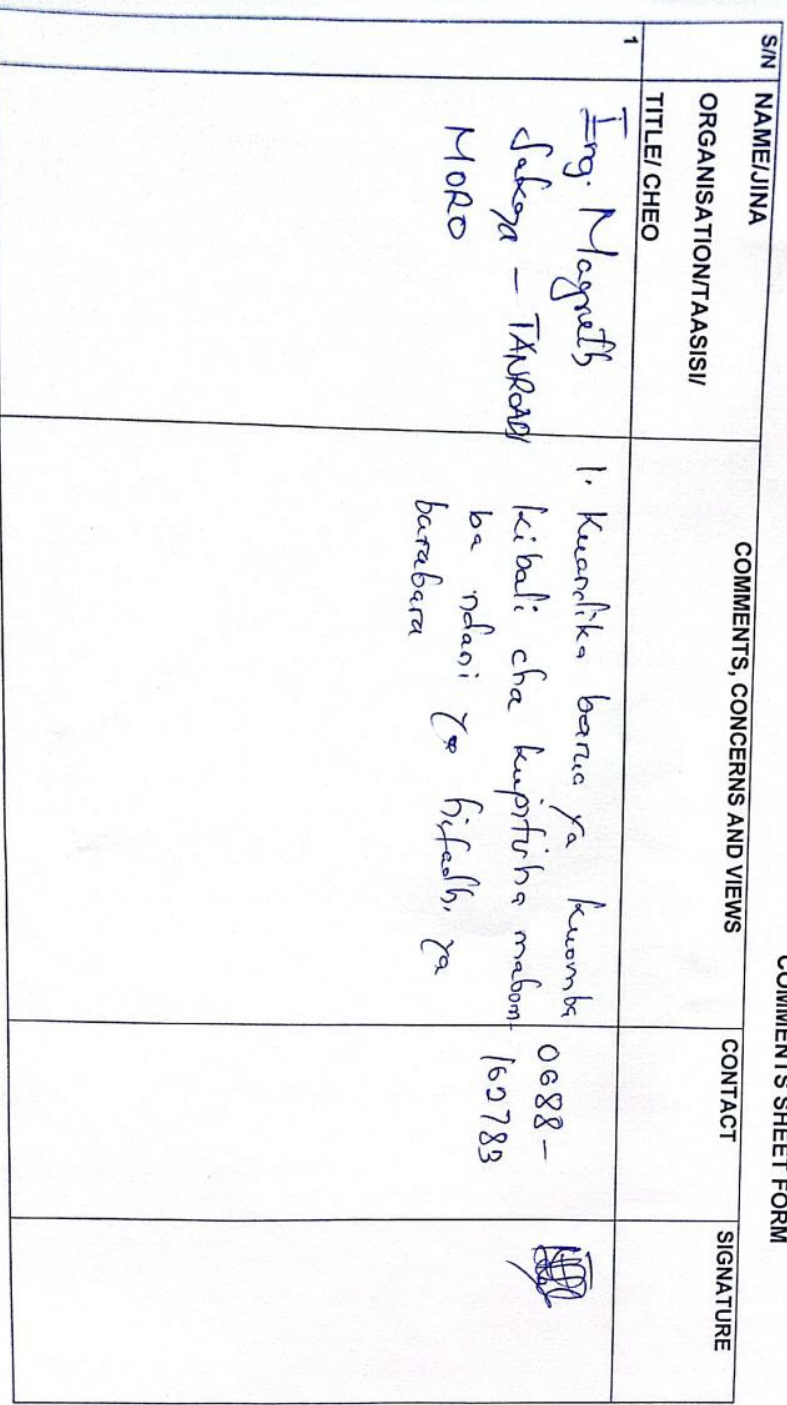 COMMENTS SHEET FORM
S/N
NAME/JINA
ORGANISATION/TAASISI/
TITLE/ CHEO
COMMENTS, CONCERNS AND VIEWS
CONTACT
SIGNATURE
1
Eng. Magneth
Sakaya - TANROADS
MORO
1. Kuandika barua ya kuomba
kibali cha kupitisha mabom-
ba ndani ya hifadhi ya
barabara
0688-
162783